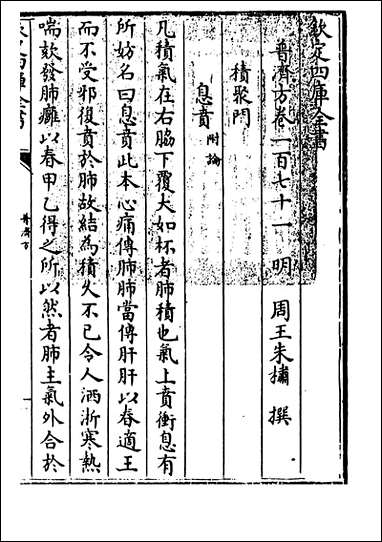 欽定四庫全書
普濟方卷一百七十一 明 周王朱橚 撰
積聚門
息賁 附論
凡積氣在右脇下覆大如杯者肺積也氣上賁衝息有
所妨名曰息賁此本心痛傳肺肺當傳肝肝以春適王
而不受邪復賁於肺故結為積久不已令人洒淅寒熱
喘欬發肺癰以春甲乙得之所以然者肺主氣外合於
普濟方
一